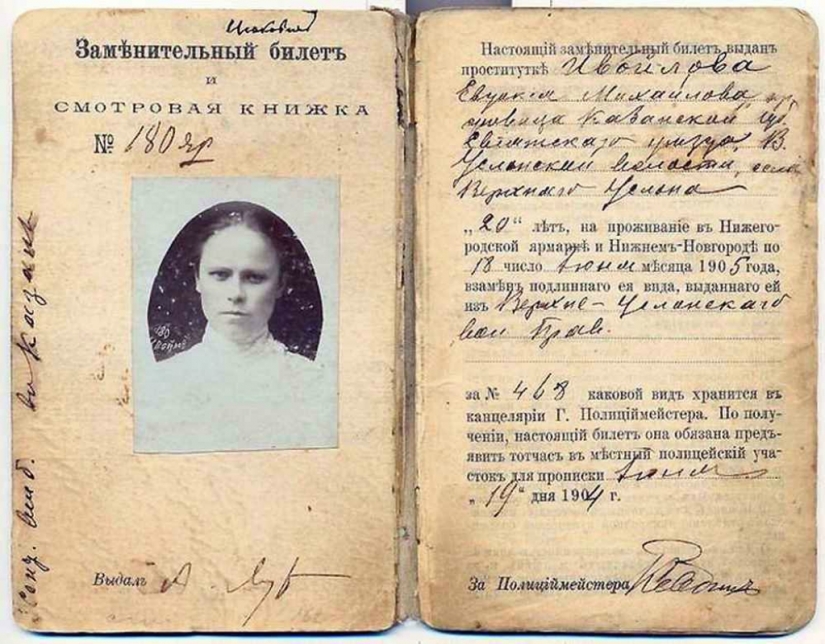 Замѣнительный билетъ
и
СМОТРОВАЯ КНИЖКА
№ 180 яр
180
Выдалъ
въ Казань
Настоящій замѣнительный билетъ выданъ
проституткѣ Ивойлова
Михайлова
Казанской
уѣзда, В.
Услонской волости, села
Верхняго Услона
„20“ лѣтъ, на проживаніе въ Нижего-
родской ярмаркѣ и Нижнемъ-Новгородѣ по
18 число Іюня мѣсяца 1905 года,
взамѣнъ подлиннаго ея вида, выданнаго ей
изъ Верхне-Услонскаго
вол Прав.
за № 468 каковой видъ хранится въ
канцеляріи Г. Полиціймейстера. По полу-
ченіи, настоящій билетъ она обязана предъ-
явить тотчасъ въ мѣстный полицейскій уча-
стокъ для прописки Іюня
„19“ дня 1904 г.
За Полиціймейстера